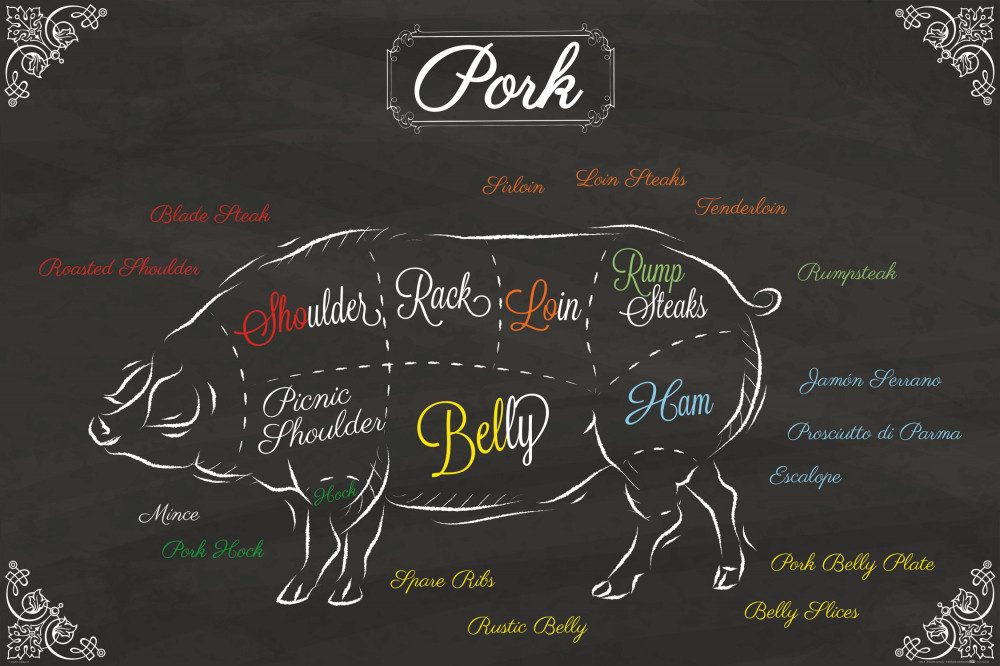 Pork
Sirloin
Loin Steaks
Tenderloin
Blade Steak
Roasted Shoulder
Rumpsteak
Shoulder
Rack
Loin
Rump
Steaks
Jamón Serrano
Picnic
Shoulder
Belly
Ham
Prosciutto di Parma
Escalope
Hock
Mince
Pork Hock
Spare Ribs
Pork Belly Plate
Rustic Belly
Belly Slices